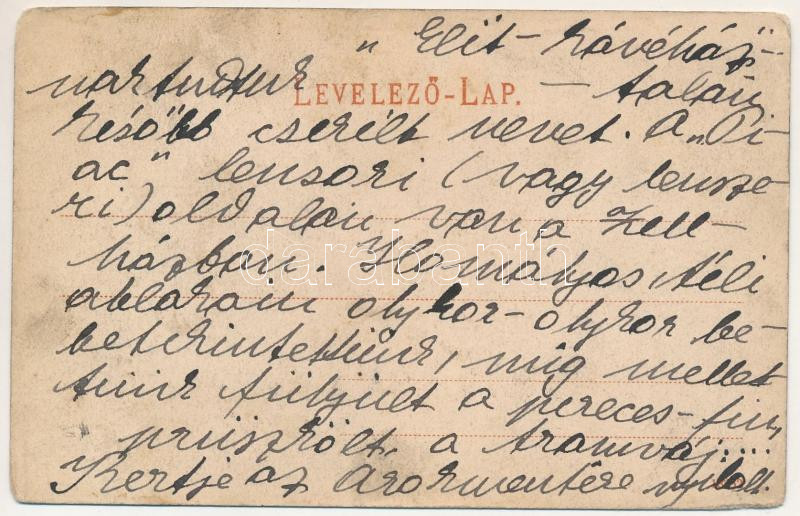 „Elit-kávéház"-
nak tudtuk — talán
LEVELEZŐ-LAP.
később cserélt nevet. A „Pi-
ac" lensori (vagy lensze-
ri) oldalán van a Zell-
házban. Homályos, téli
ablakain olykor-olykor be-
betekintettünk, míg mellet-
tünk fütyült a pereces-fiu,
prüszkölt a tramváj....
Kertje az Árokmentére nyilott.
darabanth